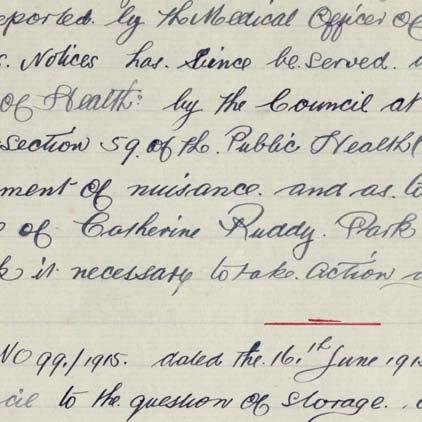 eported. by the Medical Officer of
s. Notices has. Since be. served.
of Health: by the Council at
Section 59. of the. Public Health
ment of nuisance. and as. to
of Catherine Ruddy. Park
k it. necessary to take. action
No 99./1915. dated the. 16.th June 191
cil to the question of Storage.